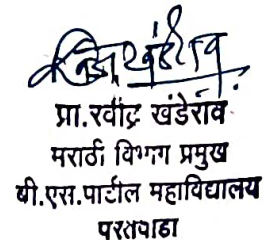 रविंद्र खंडेराव
प्रा.रवींद्र खंडेराव
मराठी विभाग प्रमुख
बी.एस.पाटील महाविद्यालय
परतवाडा